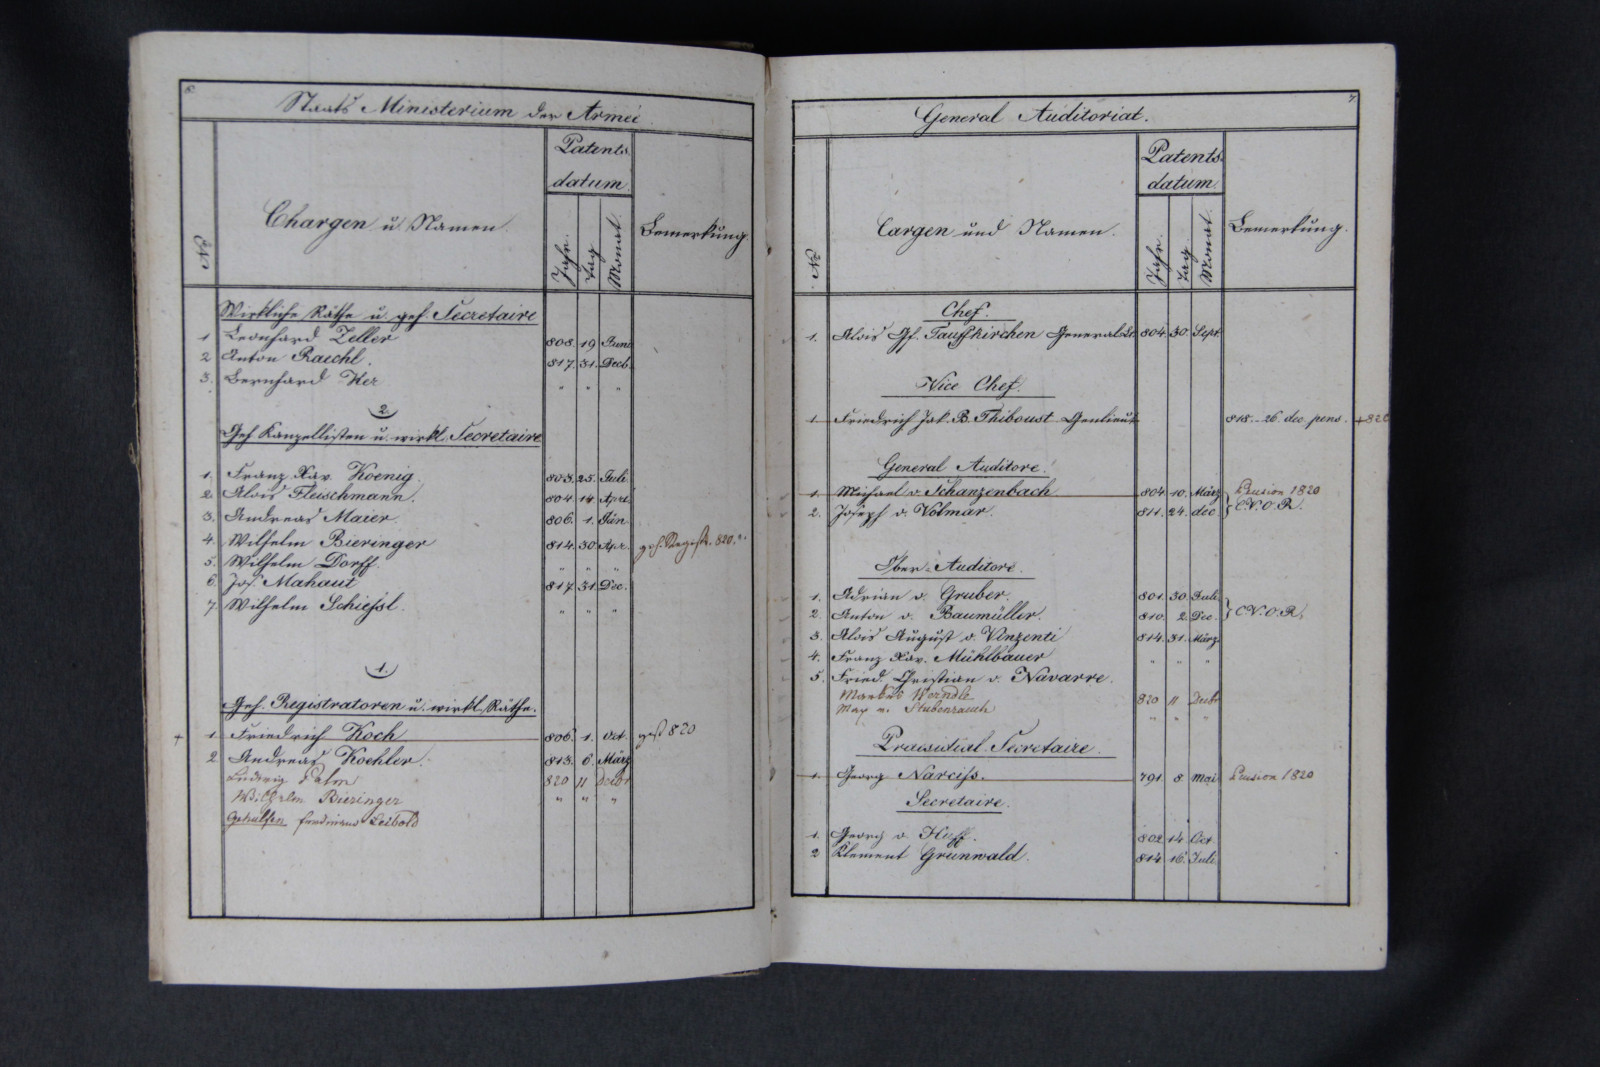 6.
Staats Ministerium der Armée.
No
Chargen u. Namen.
Patents
datum.
Jahr.
Tag
Monat.
Bemerkung.
Wirkliche Räthe u. geh. Secretaire
1 Leonhard Zeller 808. 19 Juni
2 Anton Raichl. 817. 31. Decb.
3. Bernhard " " "
2.
Geh Kanzellisten u. wirkl. Secretaire
1. Franz Xav. Koenig. 803. 25. Juli
2. Alois Fleischmann. 804 14 Apr.
3. Andreas Maier. 806. 1. Jän.
4. Wilhelm Bieringer 814. 30 Apr. geh. Regist. 820.
5. Wilhelm Dorff. " " "
6. Jos. Mahaut 817. 31. Dec.
7. Wilhelm Schiefsl. " " "
1.
Geh. Registratoren u. wirkl. Räthe.
+ 1. Friedrich Koch 806. 1. Oct. gest 820
2 Andreas Koehler. 813. 6. März
Ludwig Palm 820 11 Decbr
Wilhelm Bieringer " " "
Gehülfen Ferdinand Leibold
7.
General Auditoriat.
No
Cargen und Namen.
Patents
datum.
Jahr.
Tag
Monat.
Bemerkung.
Chef.
1. Alois Gf. Tauffkirchen 804. 30. Sept.
Vice Chef.
1. Friedrich Jak. B. Thiboust Genlieut 818. 26 dec pens. +820
General Auditore.
1. Michael v. Schanzenbach 804. 10. März Pension 1820
2. Joseph v. Volmar. 811. 24. dec } C.V.O.R.
Ober-Auditore.
1. Adrian v. Gruber. 801. 30. Juli
2. Anton v. Baumüller. 810. 2. Dec. } C.V.O.R.
3. Alois August v. Vinzenti 814. 31. März
4. Franz Xav. Mühlbauer " " "
5. Fried. Christian v. Navarre.
Markus Werndle 820 11 Decbr
Max v. Stubenrauch " " "
Praesidial-Secretaire.
1. Georg Narciss. 791. 8. Mai Pension 1820
Secretaire.
1. Georg v. Huff. 802 14 Oct.
2 Klement Grünwald. 814 16. Juli